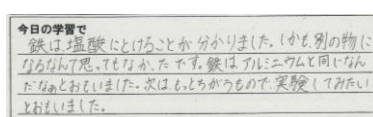 今日の学習で
鉄は、塩酸にとけることが分かりました。しかも、別の物に
なるなんて思ってもなかったです。鉄はアルミニウムと同じなん
だなぁとおもいました。次は、もっとちがうもので、実験してみたい
とおもいました。